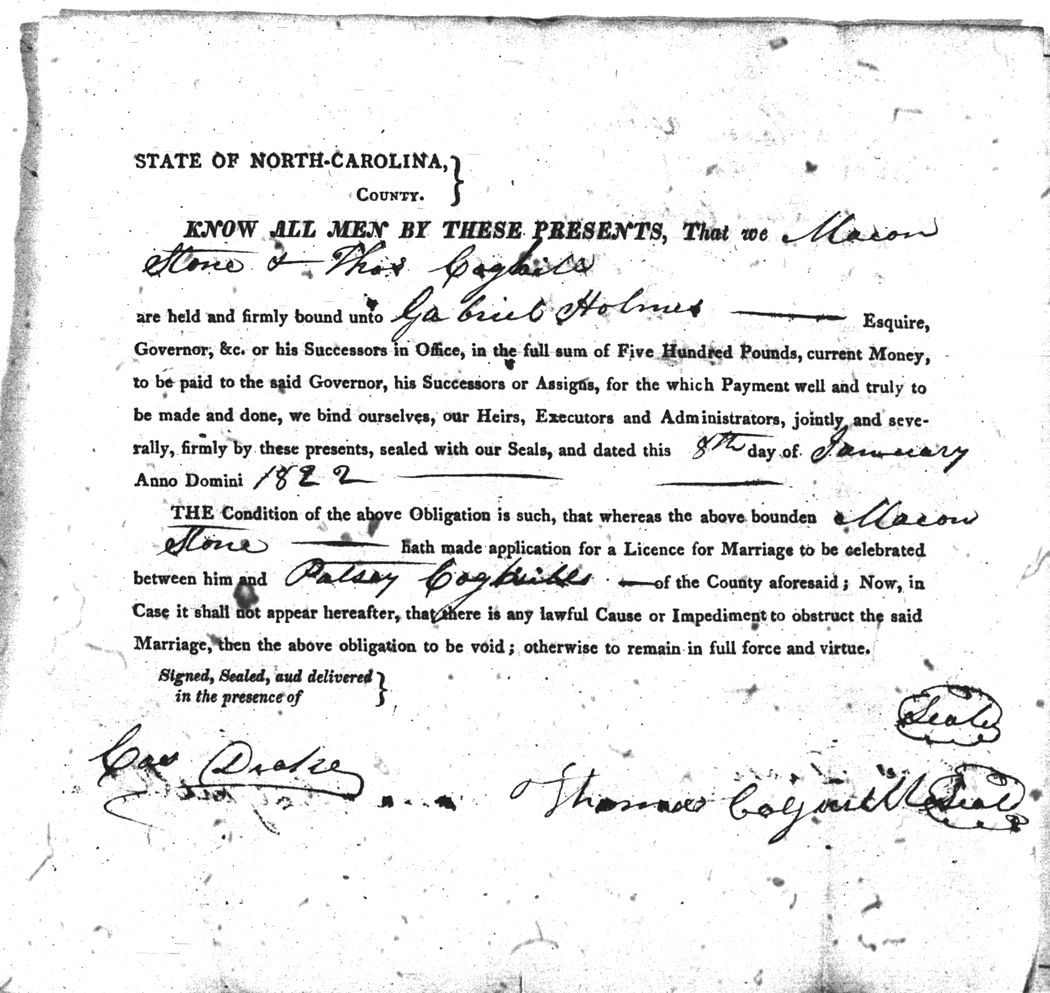 STATE OF NORTH-CAROLINA,
COUNTY.
KNOW ALL MEN BY THESE PRESENTS, That we Macon
Stone & Thos Coghill
are held and firmly bound unto Gabriel Holmes Esquire,
Governor, &c. or his Successors in Office, in the full sum of Five Hundred Pounds, current Money,
to be paid to the said Governor, his Successors or Assigns, for the which Payment well and truly to
be made and done, we bind ourselves, our Heirs, Executors and Administrators, jointly and seve-
rally, firmly by these presents, sealed with our Seals, and dated this 8th day of January
Anno Domini 1822
THE Condition of the above Obligation is such, that whereas the above bounden Macon
Stone hath made application for a Licence for Marriage to be celebrated
between him and Patsey Coghill of the County aforesaid; Now, in
Case it shall not appear hereafter, that there is any lawful Cause or Impediment to obstruct the said
Marriage, then the above obligation to be void; otherwise to remain in full force and virtue.
Signed, Sealed, aud delivered
in the presence of
Seal
Cas Drake
Thomas Coghill Seal